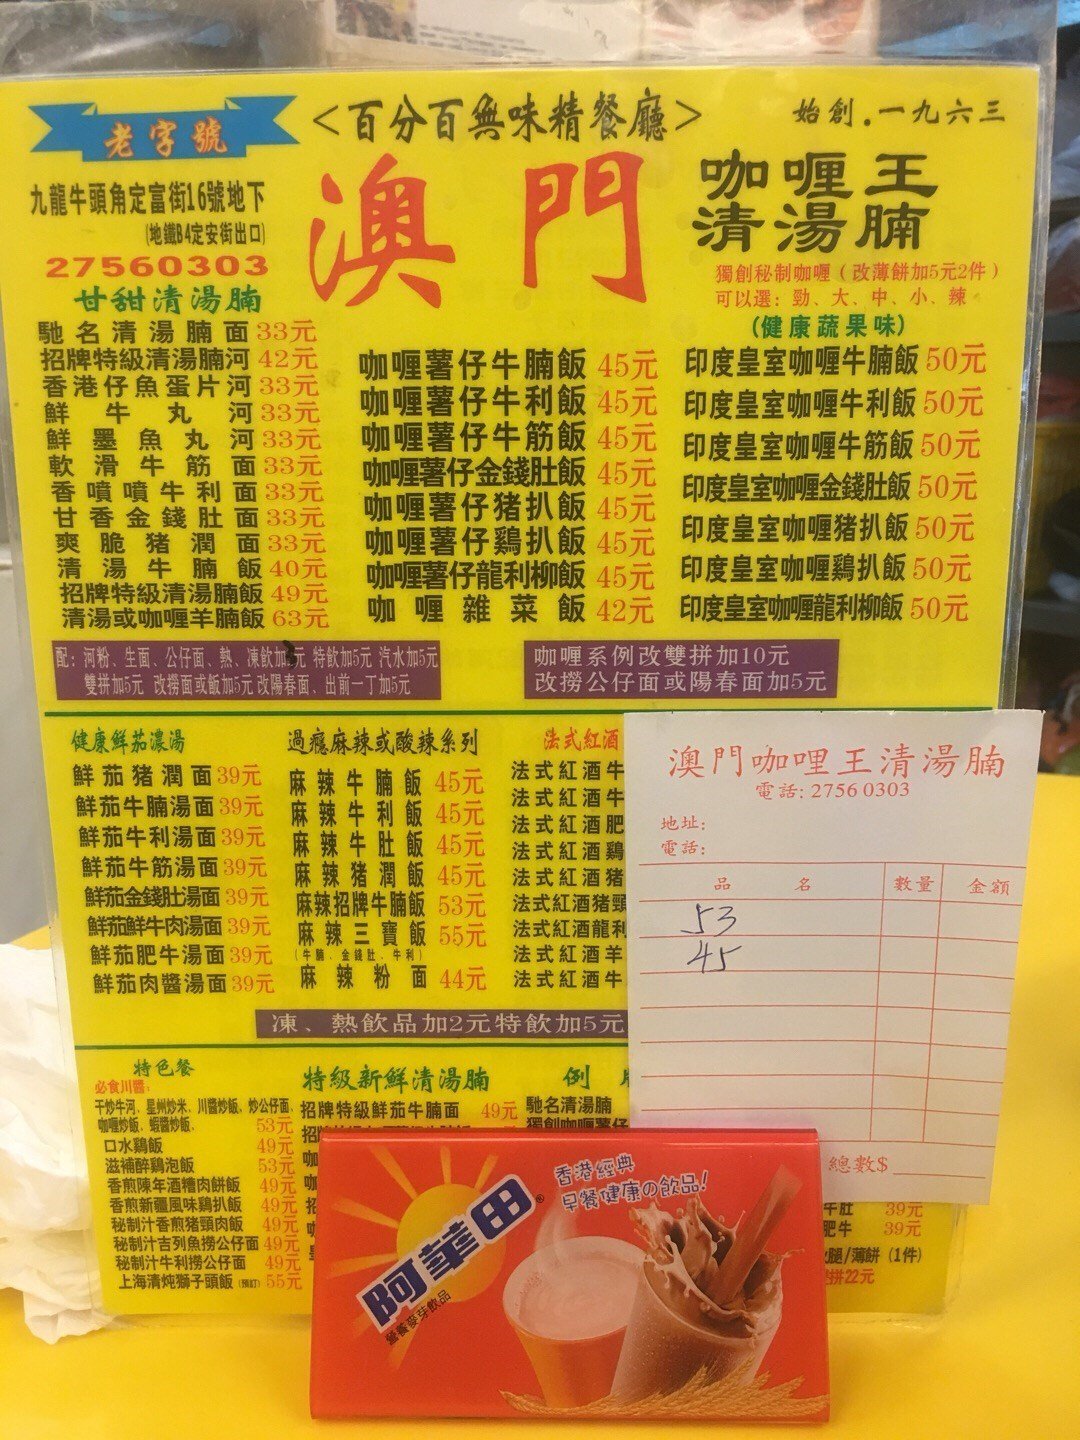 老字號
<百分百無味精餐廳>
始創.一九六三
九龍牛頭角定富街16號地下
(地鐵B4定安街出口)
27560303
澳門
咖喱王
清湯腩
獨創秘制咖喱(改薄餅加5元2件)
可以選:勁、大、中、小、辣
(健康蔬果味)
甘甜清湯腩
馳名清湯腩面 33元
招牌特級清湯腩河 42元
香港仔魚蛋片河 33元
鮮牛丸河 33元
鮮墨魚丸河 33元
軟滑牛筋面 33元
香噴噴牛利面 33元
甘香金錢肚面 33元
爽脆猪潤面 33元
清湯牛腩飯 40元
招牌特級清湯腩飯 49元
清湯或咖喱羊腩飯 63元
咖喱薯仔牛腩飯 45元
咖喱薯仔牛利飯 45元
咖喱薯仔牛筋飯 45元
咖喱薯仔金錢肚飯 45元
咖喱薯仔猪扒飯 45元
咖喱薯仔鷄扒飯 45元
咖喱薯仔龍利柳飯 45元
咖喱雜菜飯 42元
印度皇室咖喱牛腩飯 50元
印度皇室咖喱牛利飯 50元
印度皇室咖喱牛筋飯 50元
印度皇室咖喱金錢肚飯 50元
印度皇室咖喱猪扒飯 50元
印度皇室咖喱鷄扒飯 50元
印度皇室咖喱龍利柳飯 50元
配:河粉、生面、公仔面、熱、凍飲加元 特飲加5元 汽水加5元
雙拼加5元 改撈面或飯加5元 改陽春面、出前一丁加5元
咖喱系例改雙拼加10元
改撈公仔面或陽春面加5元
健康鮮茄濃湯
鮮茄猪潤面 39元
鮮茄牛腩湯面 39元
鮮茄牛利湯面 39元
鮮茄牛筋湯面 39元
鮮茄金錢肚湯面 39元
鮮茄鮮牛肉湯面 39元
鮮茄肥牛湯面 39元
鮮茄肉醬湯面 39元
過癮麻辣或酸辣系列
麻辣牛腩飯 45元
麻辣牛利飯 45元
麻辣牛肚飯 45元
麻辣猪潤飯 45元
麻辣招牌牛腩飯 53元
麻辣三寶飯 55元
(牛腩、金錢肚、牛利)
麻辣粉面 44元
法式紅酒
法式紅酒牛
法式紅酒牛
法式紅酒肥
法式紅酒鷄
法式紅酒猪
法式紅酒猪頸
法式紅酒龍利
法式紅酒羊
法式紅酒牛
凍、熱飲品加2元特飲加5元
澳門咖哩王清湯腩
電話:2756 0303
地址:
電話:
品名 數量 金額
53
45
總數$
特色餐
必食川醬:
干炒牛河、星州炒米、川醬炒飯、炒公仔面、
咖喱炒飯、蝦醬炒飯、 53元
口水鷄飯 49元
滋補醉鷄泡飯 53元
香煎陳年酒糟肉餅飯 49元
香煎新疆風味鷄扒飯 49元
秘制汁香煎猪頸肉飯 49元
秘制汁吉列魚撈公仔面 49元
秘制汁牛利撈公仔面 49元
上海清炖獅子頭飯(預訂) 55元
特級新鮮清湯腩
招牌特級鮮茄牛腩面 49元
例
馳名清湯腩
獨創咖喱薯仔
牛肚 39元
肥牛 39元
腿/薄餅(1件)
拼22元
香港經典
早餐健康の飲品!
阿華田®
營養麥芽飲品